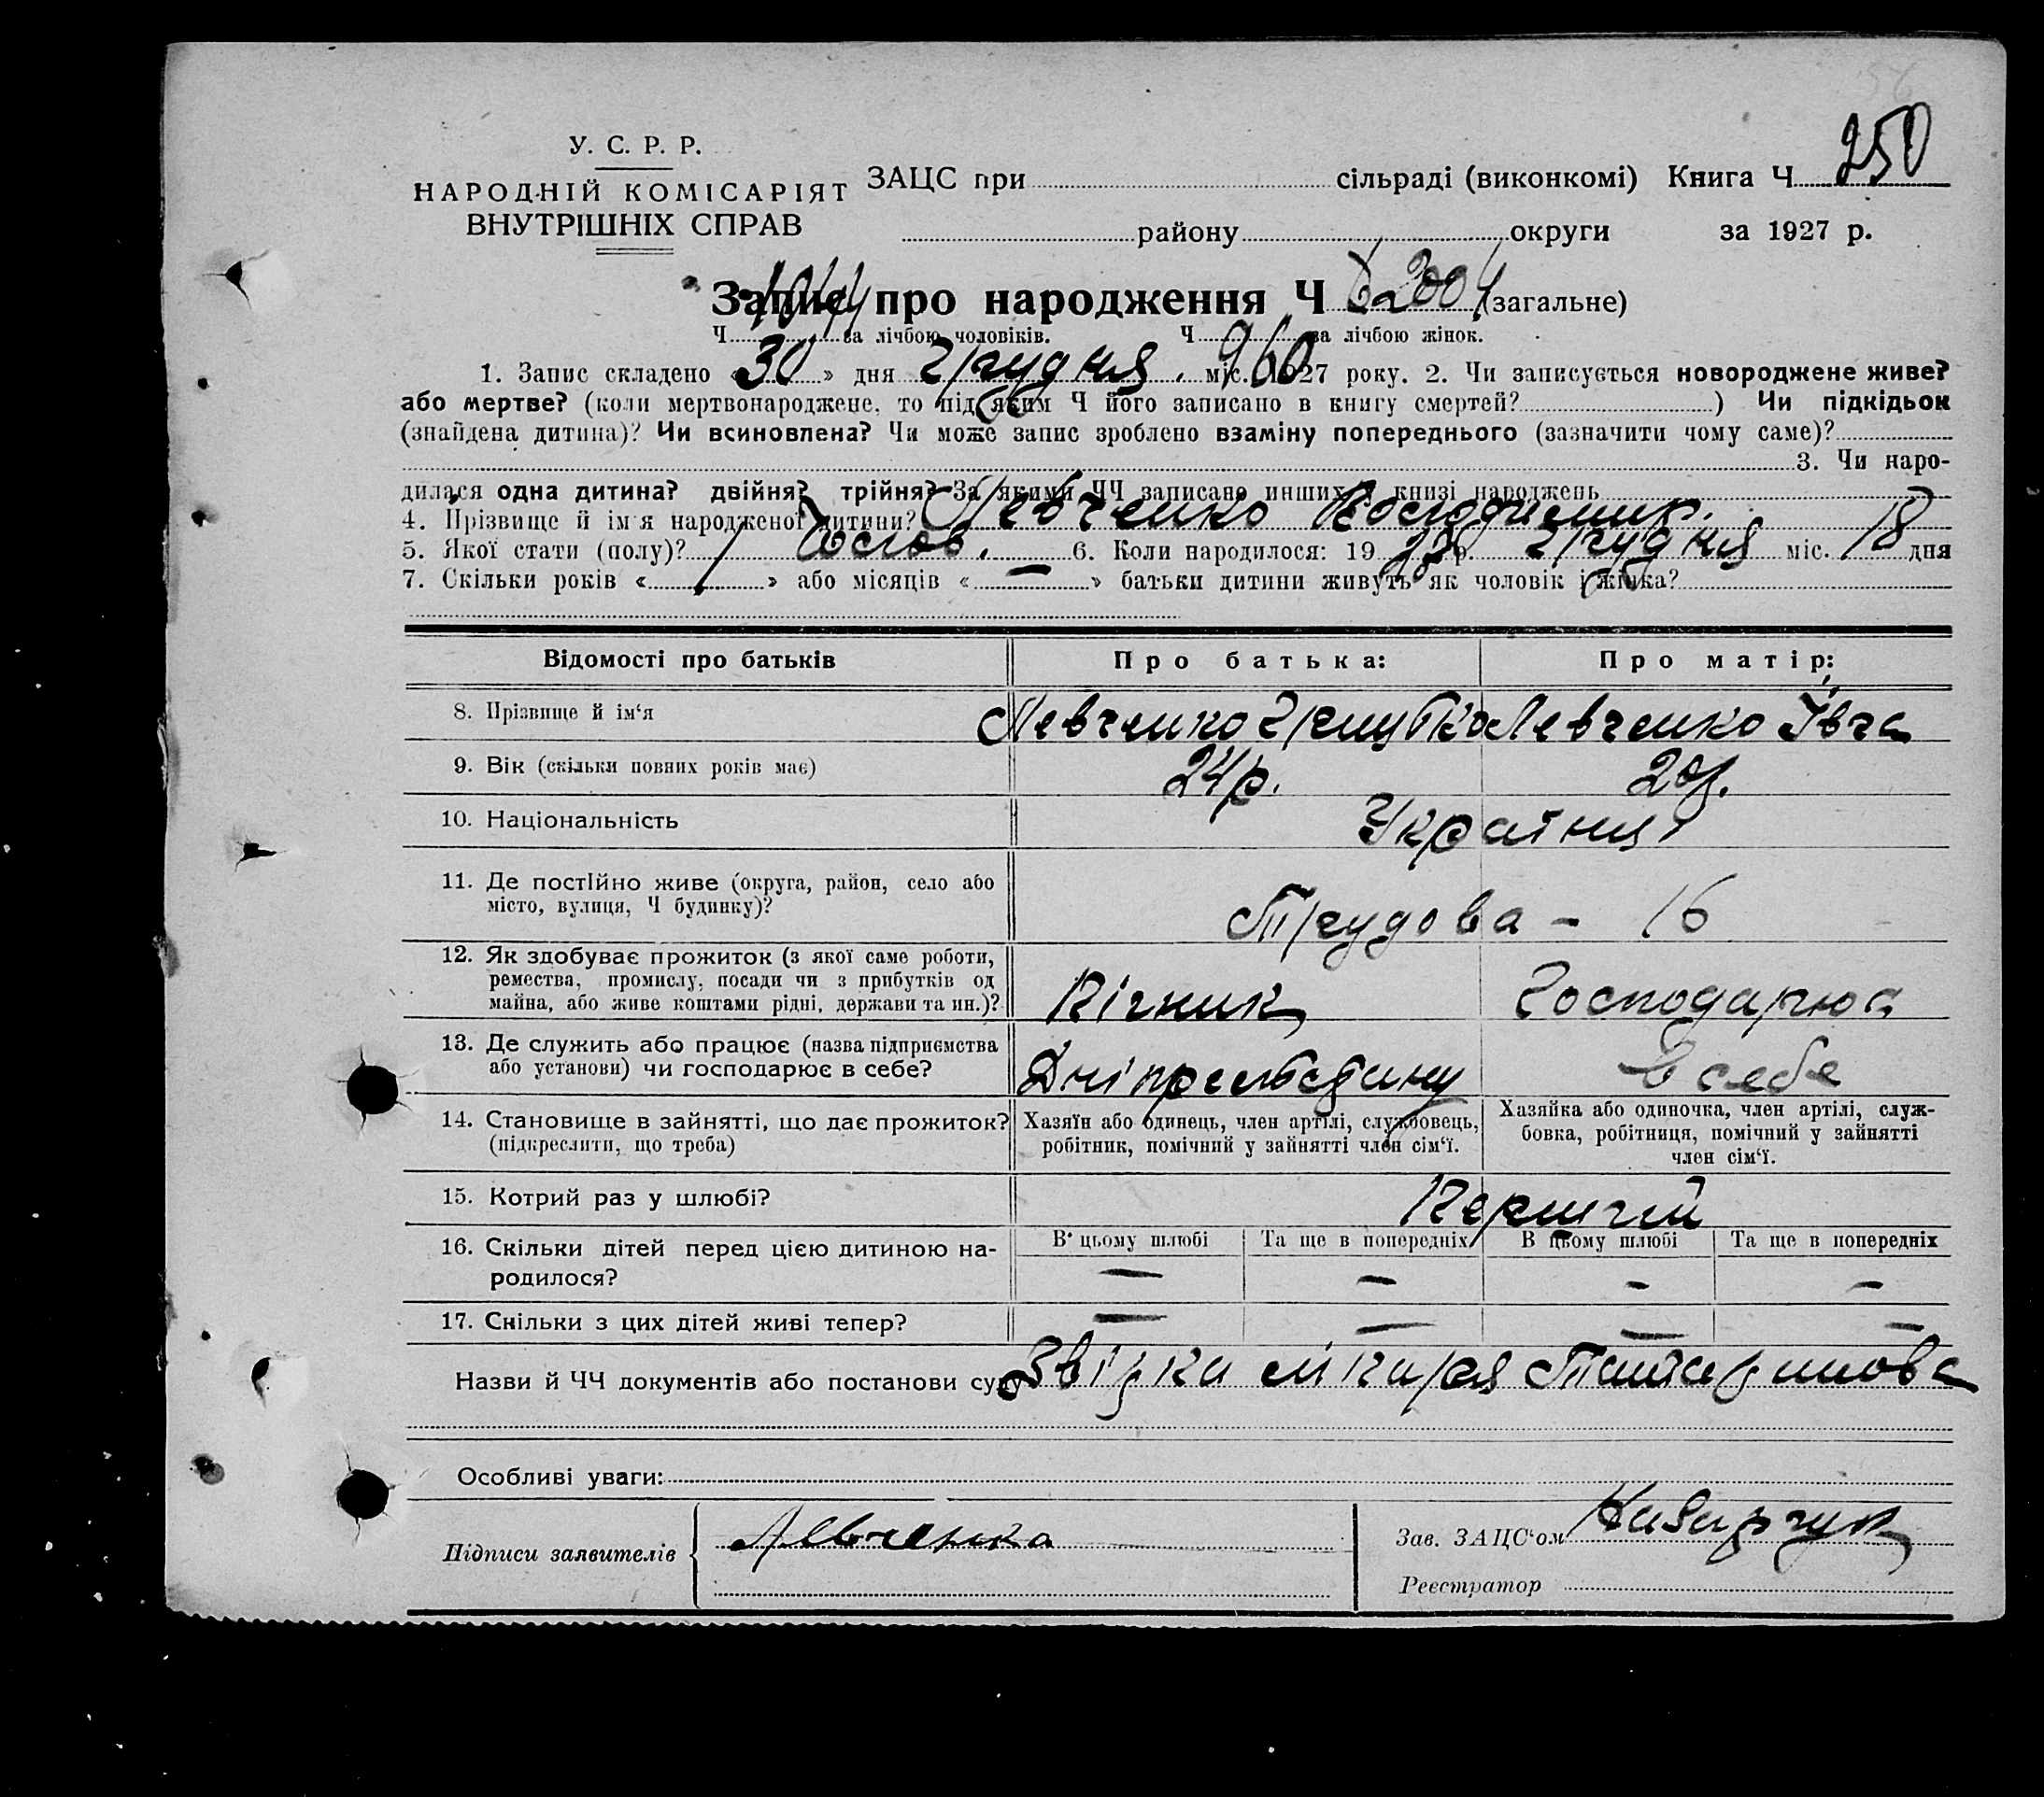 56
У. С. Р. Р.
НАРОДНІЙ КОМІСАРІЯТ
ВНУТРІШНІХ СПРАВ
ЗАЦС при сільраді (виконкомі) Книга Ч 250
району округи за 1927 р.
Запис про народження Ч 2004 (загальне)
Ч 1044 за лічбою чоловіків. Ч 960 за лічбою жінок.
1. Запис складено «30» дня Грудня міс. 1927 року. 2. Чи записується новороджене живе?
або мертве? (коли мертвонароджене, то під яким Ч його записано в книгу смертей? ) Чи підкідьок
(знайдена дитина)? Чи всиновлена? Чи може запис зроблено взаміну попереднього (зазначити чому саме)?
3. Чи наро-
дилася одна дитина? двійня? трійня? За якими ЧЧ записано инших в книзі народжень
4. Прізвище й ім'я народженої дитини? Левченко Володимир.
5. Якої стати (полу)? Чолов. 6. Коли народилося: 19 27 р. Грудня міс. 18 дня
7. Скільки років « 1 » або місяців « — » батьки дитини живуть як чоловік і жінка?
Відомості про батьків Про батька: Про матір:
8. Прізвище й ім'я Левченко Левченко Івга
9. Вік (скільки повних років має) 24 р. 20 р.
10. Національність Українці
11. Де постійно живе (округа, район, село або
місто, вулиця, Ч будинку)?
Трудова - 16
12. Як здобуває прожиток (з якої саме роботи,
ремества, промислу, посади чи з прибутків од
майна, або живе коштами рідні, держави та ин.)?
Пічник Господарює
13. Де служить або працює (назва підприємства
або установи) чи господарює в себе?
Дніпрельстану в себе
14. Становище в зайнятті, що дає прожиток?
(підкреслити, що треба)
Хазяїн або одинець, член артілі, службовець,
робітник, помічний у зайнятті член сім'ї.
Хазяйка або одиночка, член артілі, служ-
бовка, робітниця, помічний у зайнятті
член сім'ї.
15. Котрий раз у шлюбі? Перший
16. Скільки дітей перед цією дитиною на-
родилося?
В цьому шлюбі Та ще в попередніх В цьому шлюбі Та ще в попередніх
— — — —
17. Скільки з цих дітей живі тепер? — — — —
Назви й ЧЧ документів або постанови суду Звірка лікаря
Особливі уваги:
Підписи заявителів Левченко
Зав. ЗАЦС'ом
Реєстратор